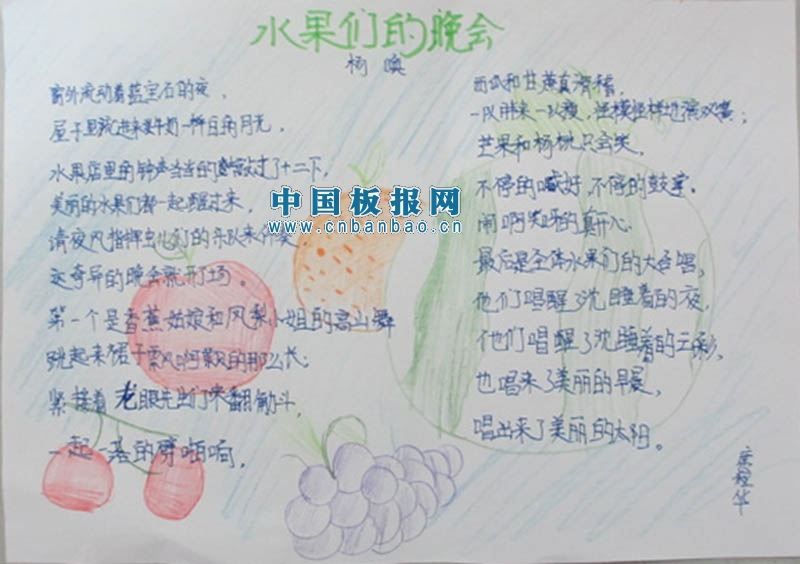 水果们的晚会
杨唤
窗外流动着蓝宝石的夜,
屋子里流进来牛奶一样白的月光,
水果店里的钟声当当的敲过了十二下,
美丽的水果们都一起醒过来,
请夜风指挥虫儿们的乐队来伴奏,
这奇异的晚会就开了场。
第一个是香蕉姑娘和凤梨小姐的高山舞
跳起来裙子飘呀飘的那么长;
紧接着龙眼先生们来翻觔斗,
一起一落的噼啪响,
西瓜和甘蔗真滑稽,
一队胖来一队瘦,怪模怪样地演双簧;
芒果和杨桃只会笑,
不停的喊好,不停的鼓掌。
闹啊笑呀的真开心,
最后是全体水果们的大合唱,
他们唱醒了沈睡着的夜,
他们唱醒了沈睡着的云彩,
也唱来了美丽的早晨,
唱出来了美丽的太阳。
程华
中国板报网
www.cnbanbao.cn